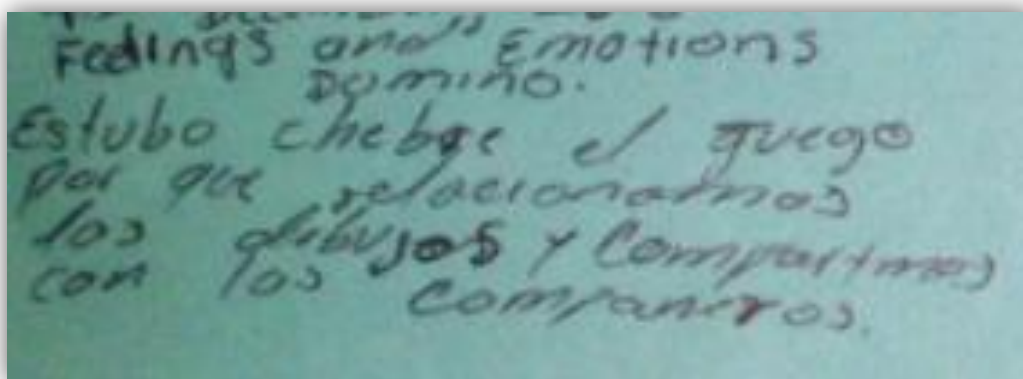 Feelings and Emotions
Domino.
Estubo chebre el juego
por que relacionamos
los dibujos y Compartimos
con los Companeros.